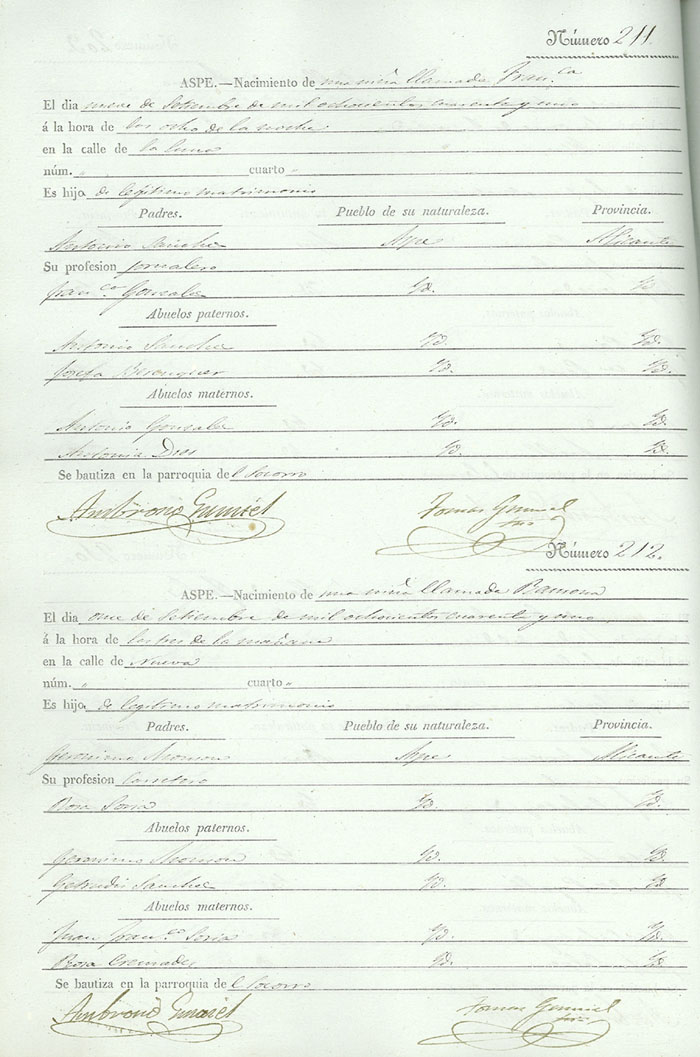 Número 211.
ASPE.—Nacimiento de una niña llamada Fran.ca
El dia nueve de Setiembre de mil ochocientos cuarenta y uno
á la hora de las ocho de la noche
en la calle de la Luna
núm. „ cuarto „
Es hijo de legitimo matrimonio
Padres. Pueblo de su naturaleza. Provincia.
Antonio Sanchez Aspe Alicante
Su profesion jornalero
Fran.ca Gonzalez Yd. Yd.
Abuelos paternos.
Antonio Sanchez Yd. Yd.
Josefa Berenguer Yd. Yd.
Abuelos maternos.
Antonio Gonzalez Yd. Yd.
Antonia Yd. Yd.
Se bautiza en la parroquia del Socorro
Ambrosio Gumiel Tomas Gumiel
Número 212.
ASPE.—Nacimiento de una niña llamada Ramona
El dia once de Setiembre de mil ochocientos cuarenta y uno
á la hora de las tres de la mañana
en la calle de Nueva
núm. „ cuarto „
Es hijo de legitimo matrimonio
Padres. Pueblo de su naturaleza. Provincia.
Geronimo Aspe Alicante
Su profesion Carretero
Rosa Soria Yd. Yd.
Abuelos paternos.
Geronimo Yd. Yd.
Getrudis Sanchez Yd. Yd.
Abuelos maternos.
Juan Fran.co Soria Yd. Yd.
Rosa Cremades Yd. Yd.
Se bautiza en la parroquia del Socorro
Ambrosio Gumiel Tomas Gumiel